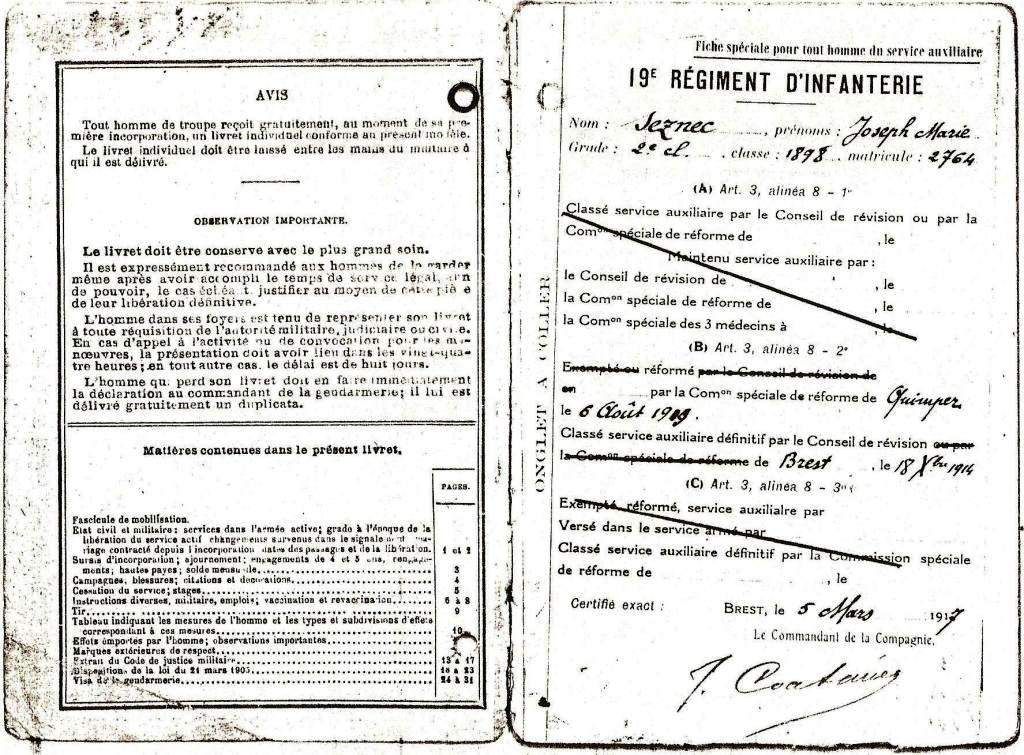 AVIS
Tout homme de troupe reçoit gratuitement, au moment de sa pre-
mière incorporation, un livret individuel conforme au présent modèle.
Le livret individuel doit être laissé entre les mains du militaire à
qui il est délivré.
OBSERVATION IMPORTANTE.
Le livret doit être conserve avec le plus grand soin.
Il est expressément recommandé aux hommes de le garder
même après avoir accompli le temps de service légal, afin
de pouvoir, le cas échéant, justifier au moyen de cette pièce
de leur libération définitive.
L'homme dans ses foyers est tenu de représenter son livret
à toute réquisition de l'autorité militaire, judiciaire ou civile.
En cas d'appel à l'activité ou de convocation pour les ma-
nœuvres, la présentation doit avoir lieu dans les vingt-qua-
tre heures; en tout autre cas, le délai est de huit jours.
L'homme qui perd son livret doit en faire immédiatement
la déclaration au commandant de la gendarmerie; il lui est
délivré gratuitement un duplicata.
Matières contenues dans le présent livret.
PAGES.
Fascicule de mobilisation.
Etat civil et militaire: services dans l'armée active; grade à l'époque de la
libération du service actif changements survenus dans le signalement mariage contracté depuis l'incorporation dates des passages et de la libération. 1 et 2
Sursis d'incorporation; ajournement; engagements de 4 et 5 ans, rengage-
ments; hautes payes; solde mensuelle. 3
Campagnes, blessures; citations et décorations. 4
Cessation du service; stages. 5
Instructions diverses, militaire, emplois; vaccination et revaccination. 6 à 8
Tir. 9
Tableau indiquant les mesures de l'homme et les types et subdivisions d'effets
correspondant à ces mesures. 10
Effets emportés par l'homme; observations importantes.
Marques extérieures de respect.
Extrait du Code de justice militaire. 13 à 17
Dispositions de la loi du 21 mars 1905. 18 à 23
Visa de la gendarmerie. 24 à 31
ONGLET A COLLER
Fiche spéciale pour tout homme du service auxiliaire
19E RÉGIMENT D'INFANTERIE
Nom : Seznec, prénoms : Joseph Marie
Grade : 2e cl. classe : 1898 matricule : 2764
(A) Art. 3, alinéa 8 - 1°
Classé service auxiliaire par le Conseil de révision ou par la
Comon spéciale de réforme de , le
Maintenu service auxiliaire par :
le Conseil de révision de , le
la Comon spéciale de réforme de , le
la Comon spéciale des 3 médecins à , le
(B) Art. 3, alinéa 8 - 2°
Exempté ou réformé par le Conseil de révision de
en par la Comon spéciale de réforme de Quimper
le 6 Août 1909.
Classé service auxiliaire définitif par le Conseil de révision ou par
la Comon spéciale de réforme de Brest, le 18 Xbre 1914
(C) Art. 3, alinéa 8 - 3°
Exempté, réformé, service auxiliaire par
Versé dans le service armé par
Classé service auxiliaire définitif par la Commission spéciale
de réforme de , le
Certifié exact : BREST, le 5 Mars 1917
Le Commandant de la Compagnie,